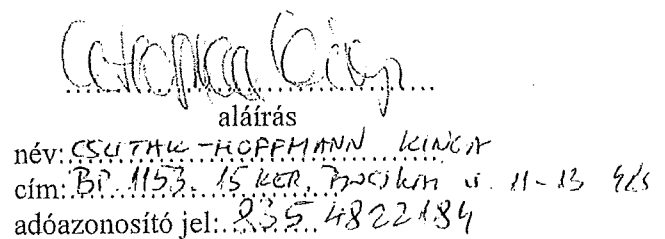 aláírás
név: CSUTAK-HOFFMANN KINGA
cím: BP. 1153. 15 KER. u. 11-13
adóazonosító jel: 8354822184